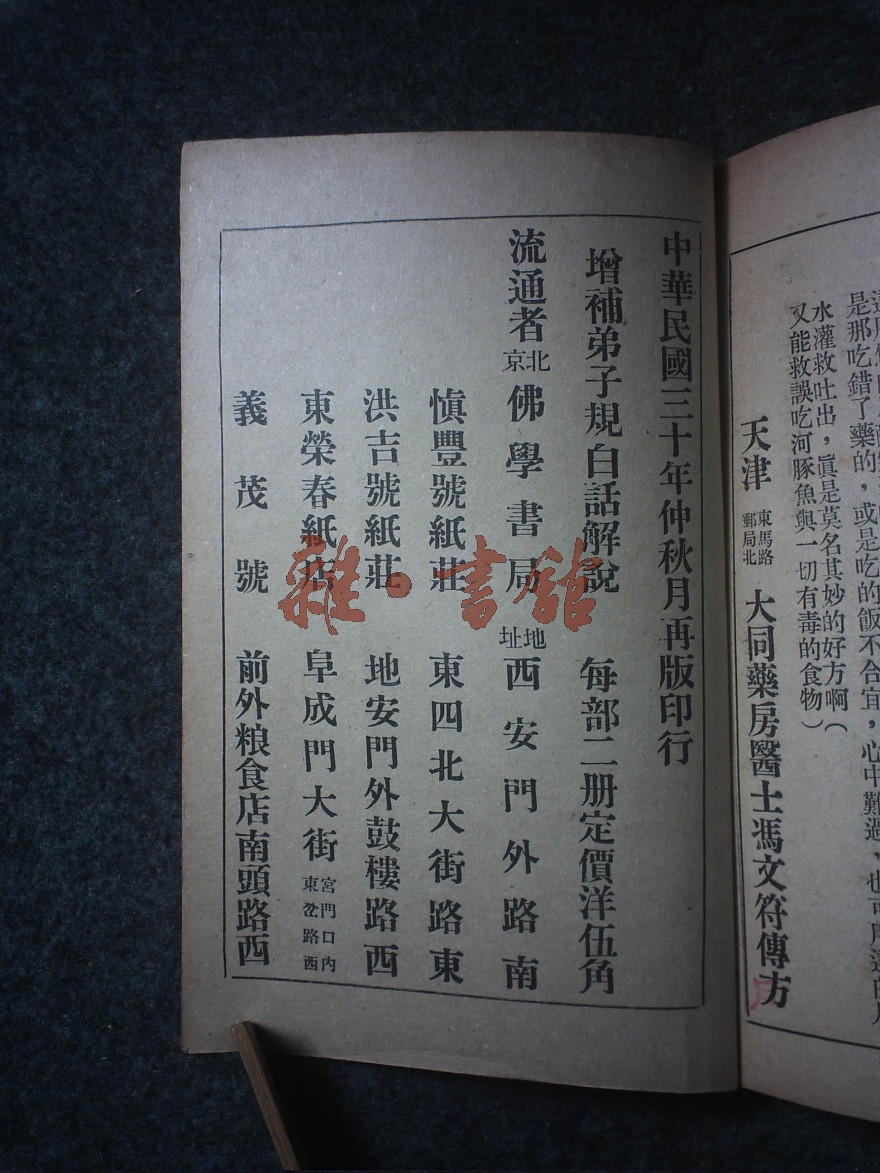 是那吃錯了藥的，或是吃的飯不合宜，心中難過，也可用這的
水灌救吐出，眞是莫名其妙的好方啊（
又能救誤吃河豚魚與一切有毒的食物）
天津 東馬路郵局北 大同藥房醫士馮文符傳方
中華民國三十年仲秋月再版印行
增補弟子規白話解說 每部二册定價洋伍角
流通者 北京 佛學書局 地址 西安門外路南
愼豐號紙莊 東四北大街路東
洪吉號紙莊 地安門外鼓樓路西
東榮春紙店 阜成門大街 宮門口內東岔路西
義茂號 前外粮食店南頭路西
雜·書館